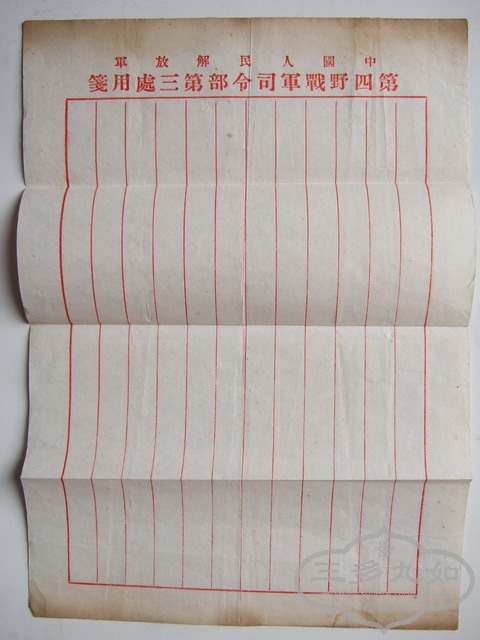 中國人民解放軍
第四野戰軍司令部第三處用箋
三多九如